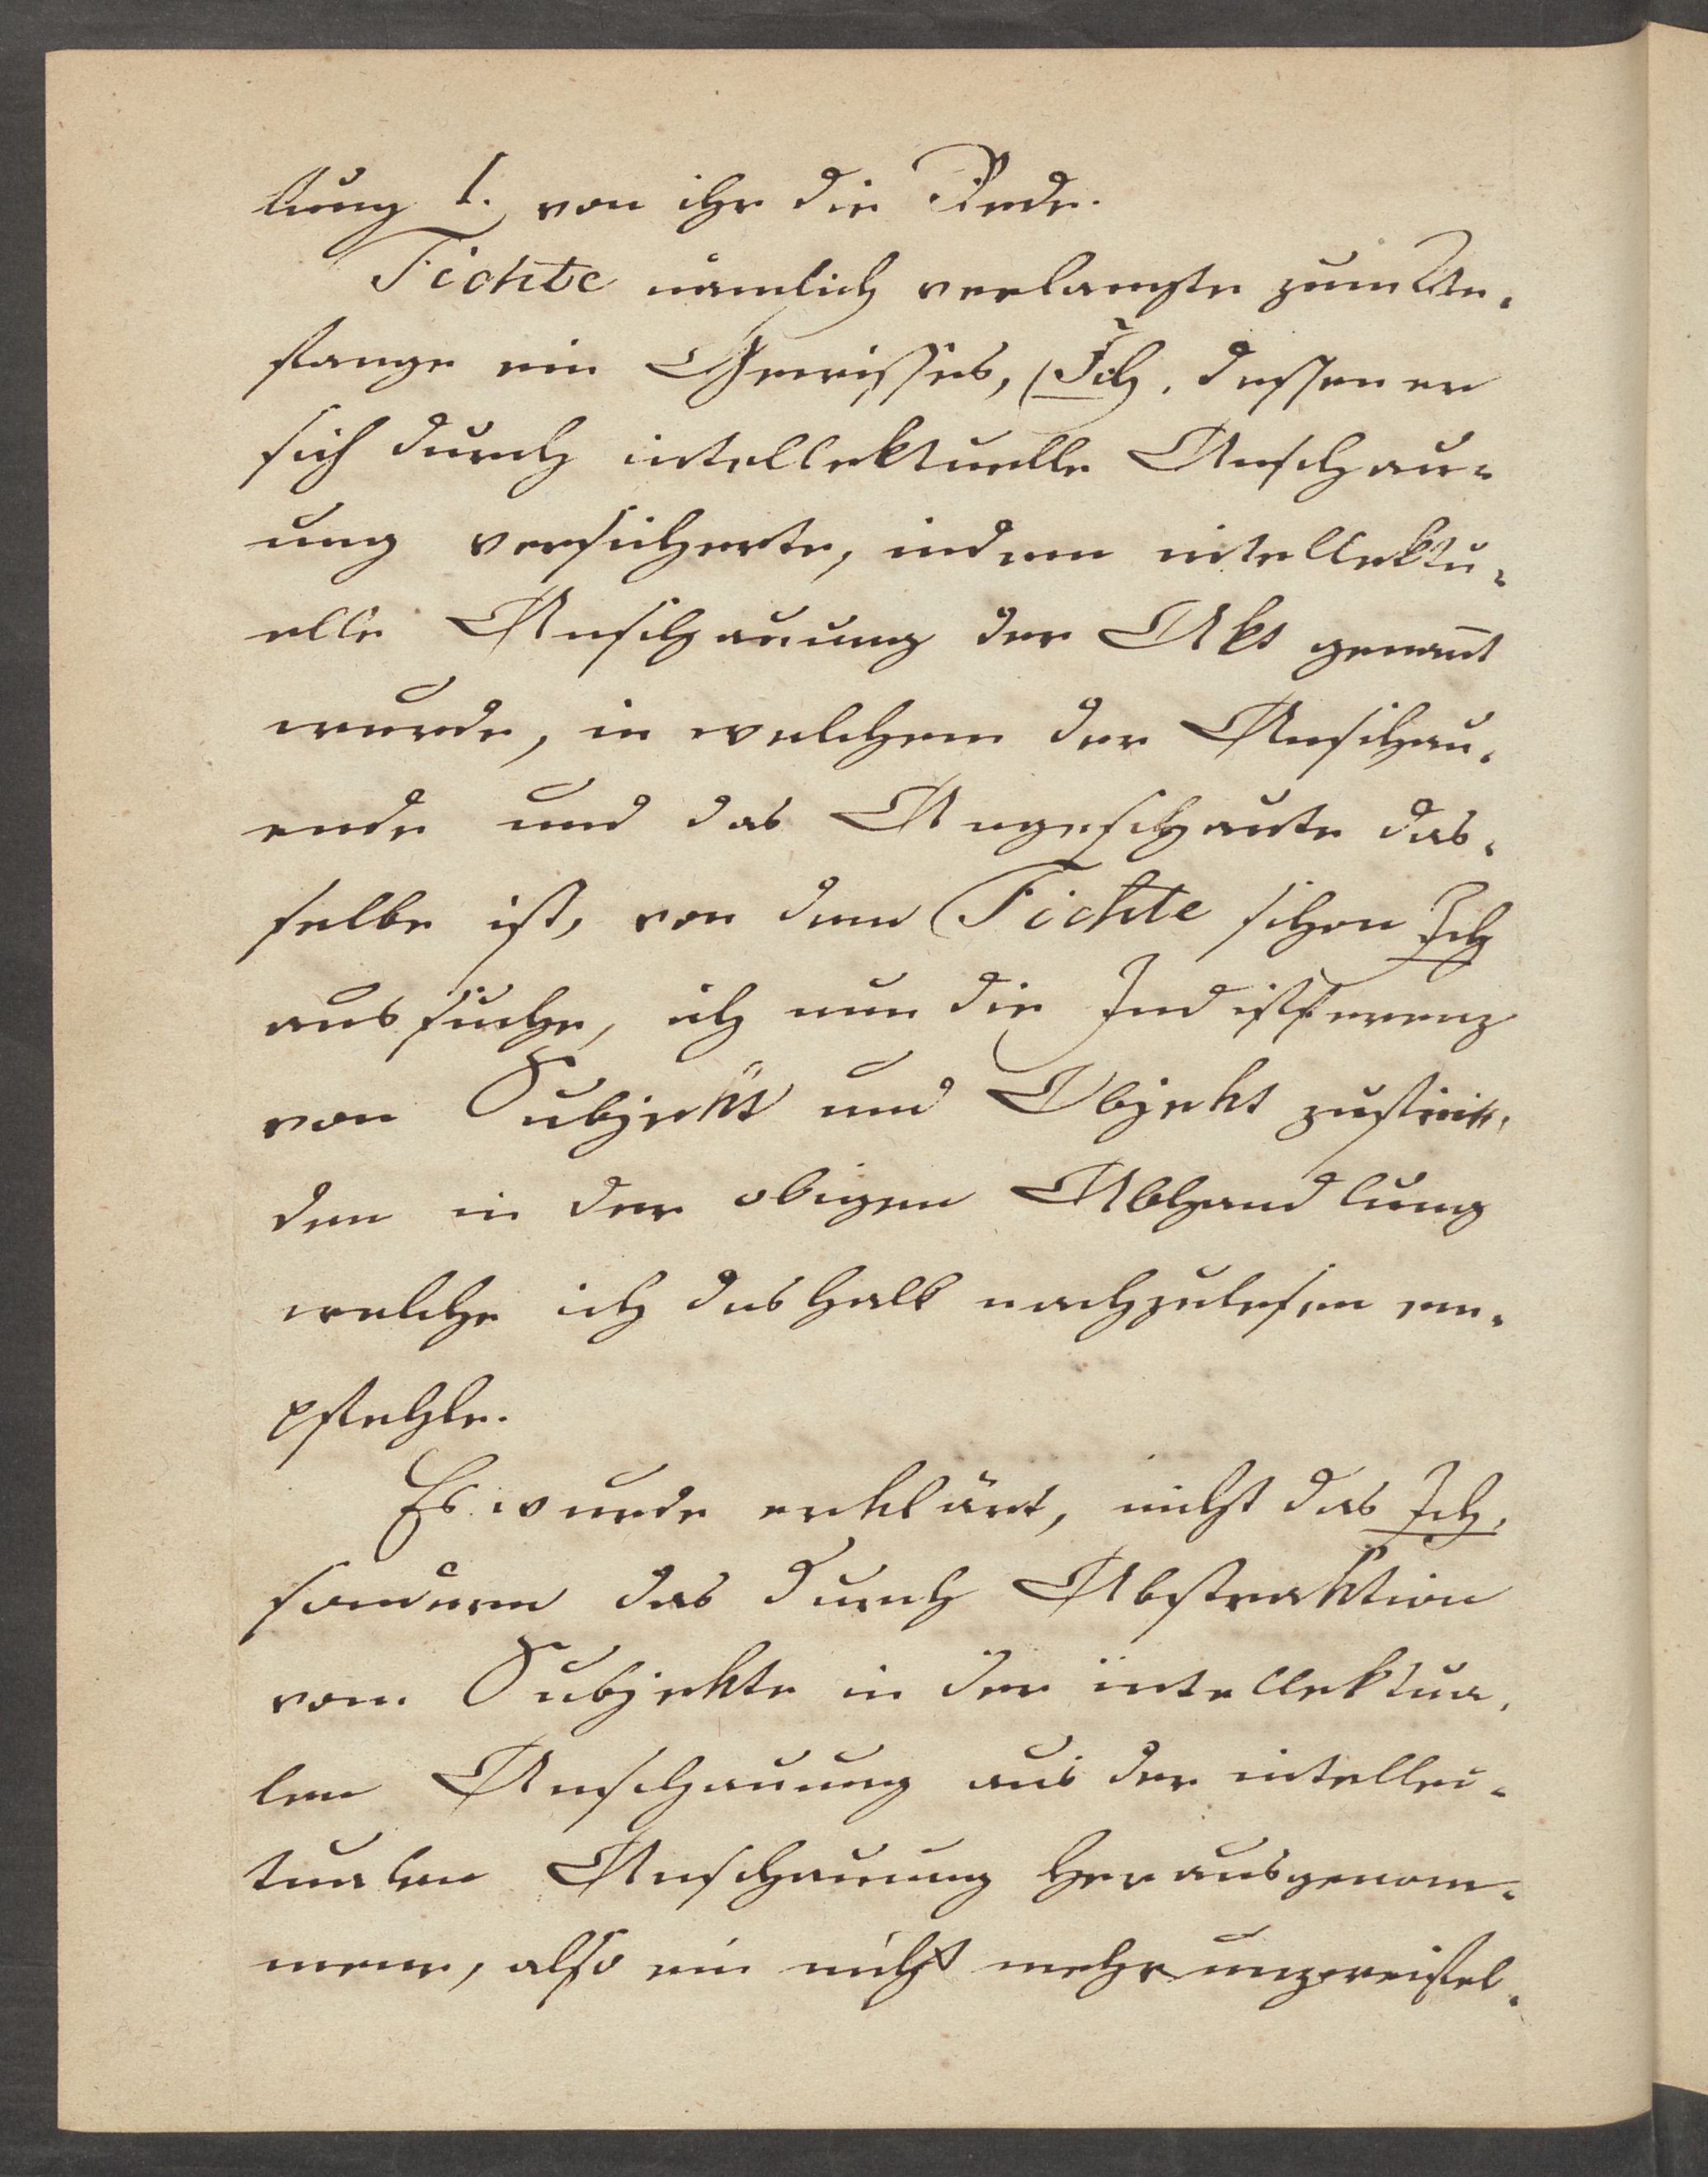 lung 1. von ihr die Rede.
Fichte nämlich verlangte zum An-
fange ein Gewisses, (Ich, dessen er
sich durch intellektuelle Anschau-
ung versicherte, indem intellektu-
elle Anschauung der Akt genan̄t
wurde, in welchem der Anschau-
ende und das Angeschaute das-
selbe ist, von dem Fichte schon Ich
aussuche, ich nun die Indifferenz
von Subjekt und Objekt zu
den in der obigen Abhandlung
welche ich deshalb nachzulesen em-
pfehle.
Es wurde erklärt, nicht das Ich,
sondern das durch Abstraktion
vom Subjekte in der intellektua-
len Anschauung aus der intellec-
tualen Anschauung herausgenom-
mene, also ein nicht mehr unzweifel-